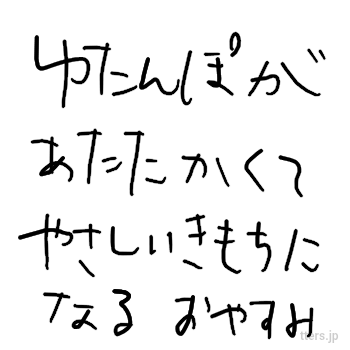 ゆたんぽが
あたたかくて
やさしいきもちに
なる おやすみ
tters.jp